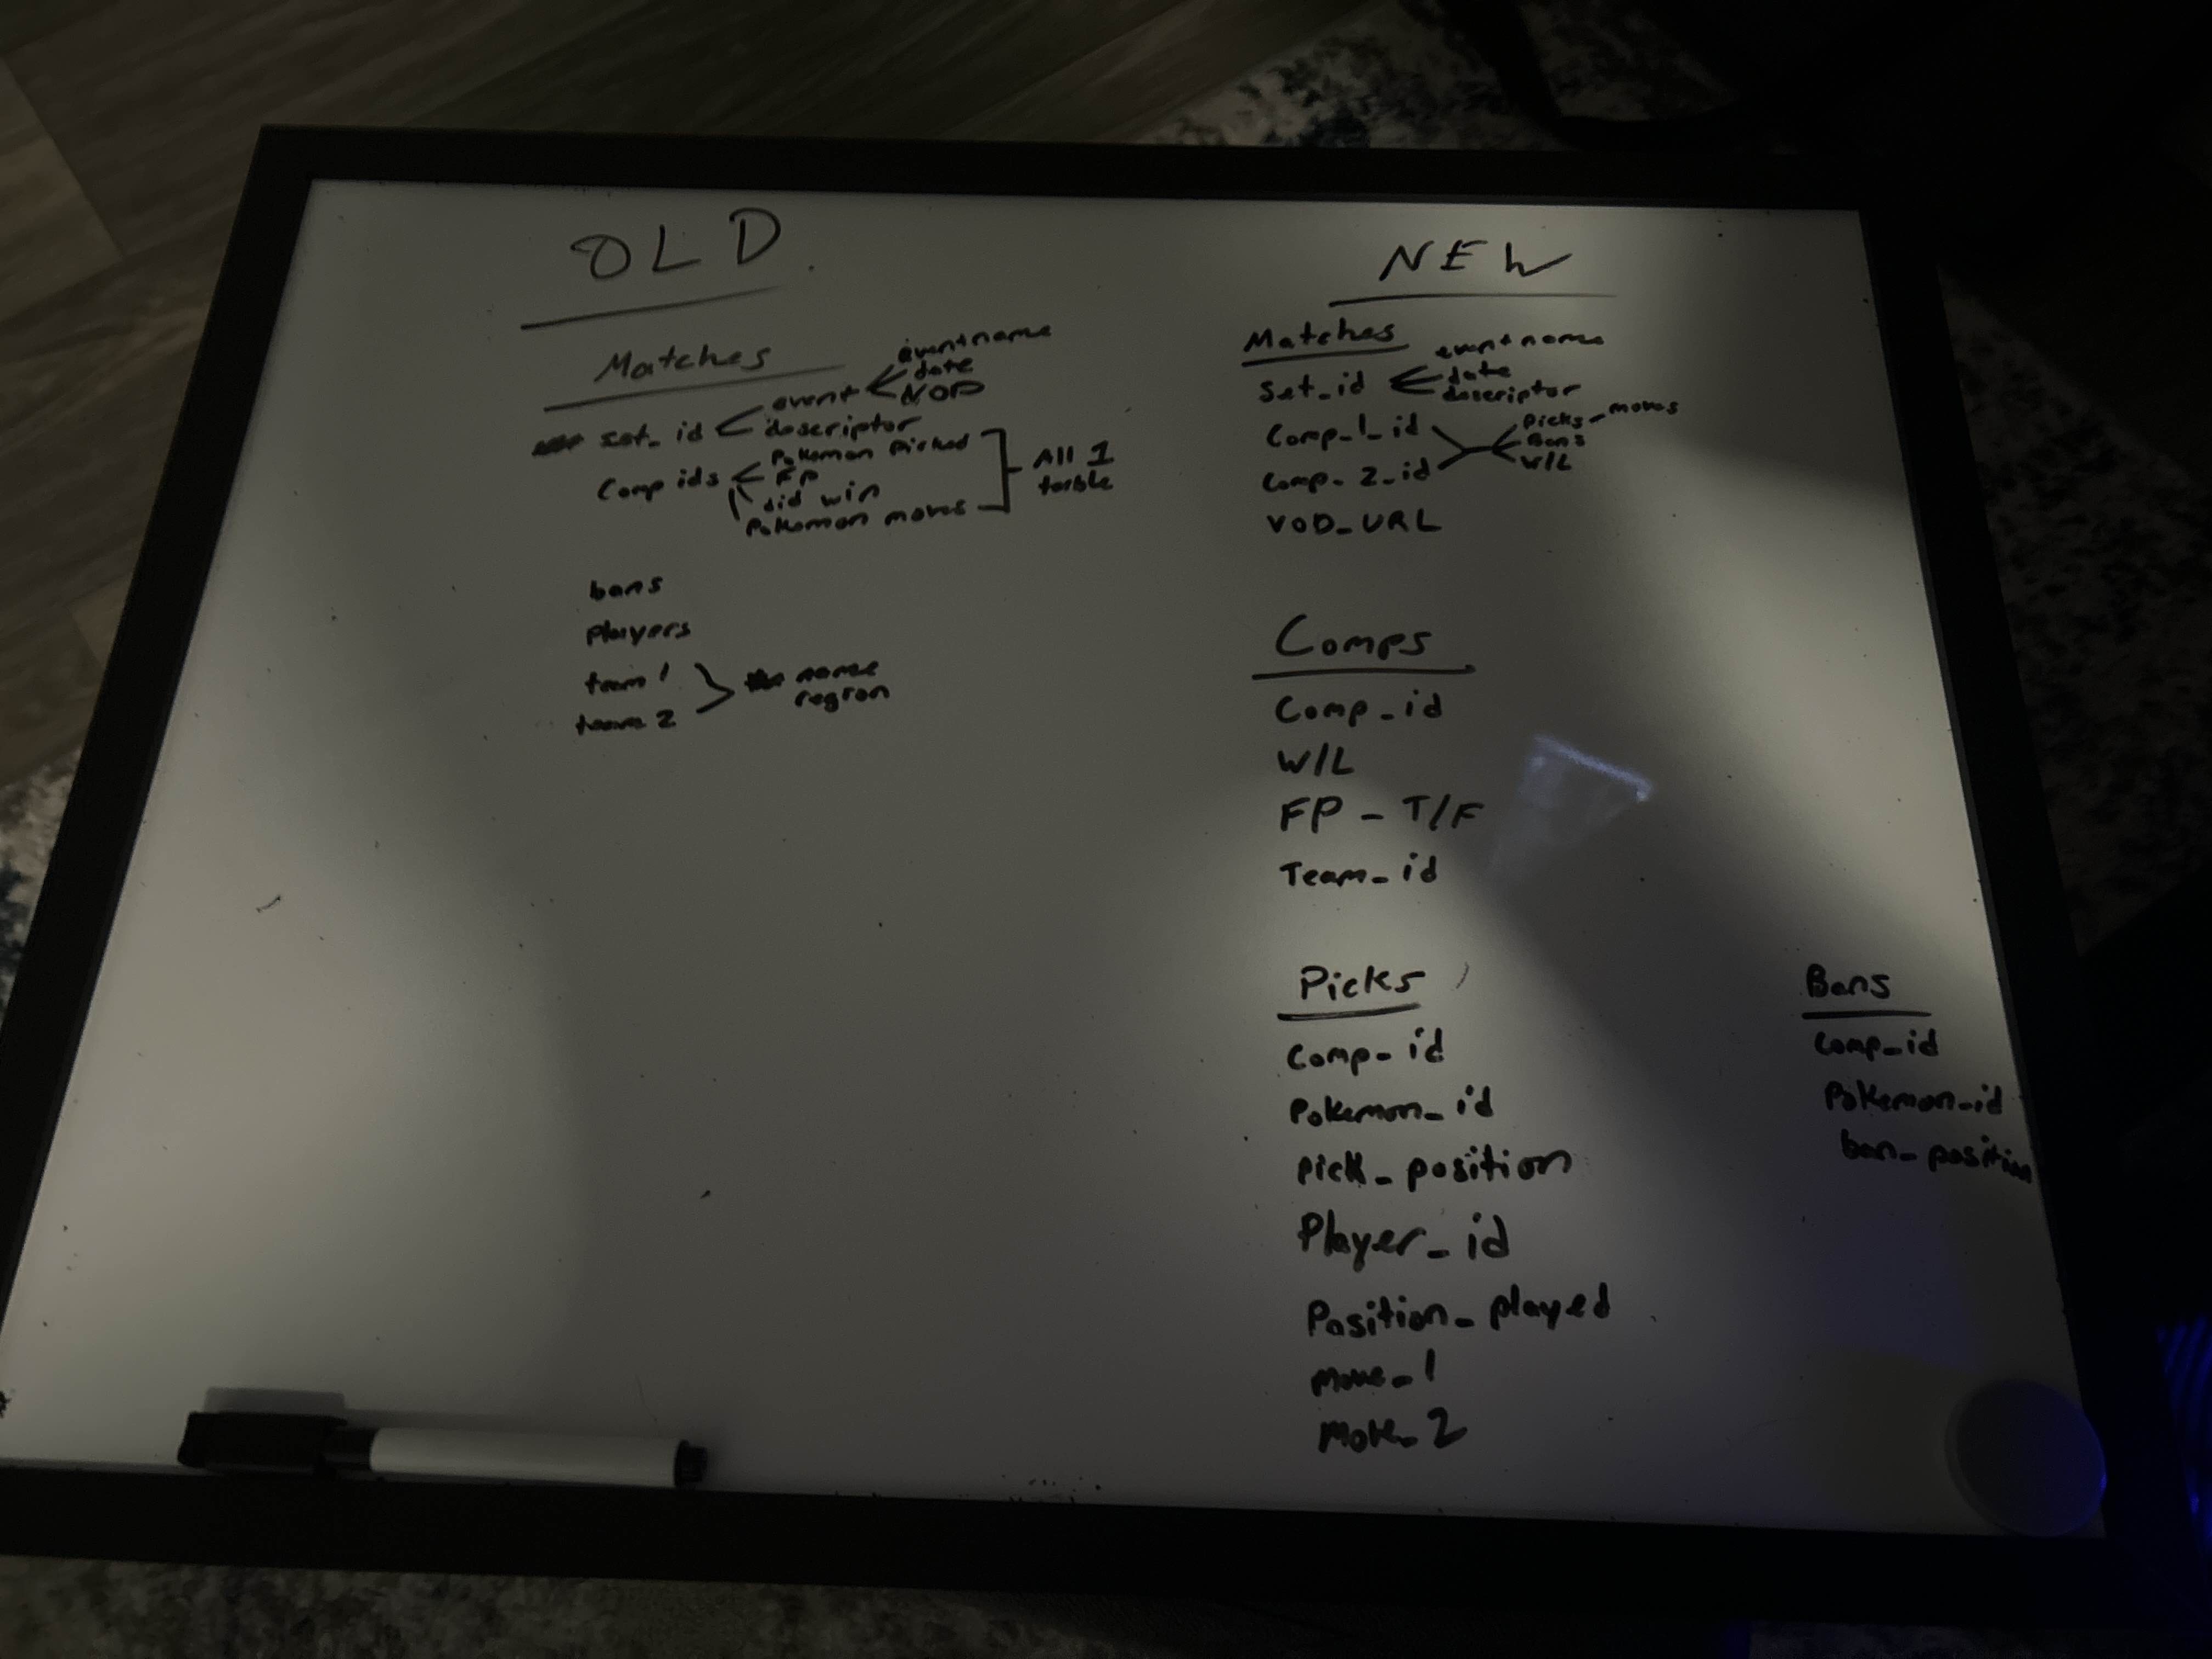 OLD
Matches
set_id
event
event name
date
VOD
descriptor
Comp ids
Pokemon Picked
FP
did win
Pokemon moves
All 1
table
bans
players
team 1
team 2
name
region
NEW
Matches
Set_id
event name
date
descriptor
Comp_1_id
Comp_2_id
Picks - moves
Bans
W/L
VOD_URL
Comps
Comp_id
W/L
FP - T/F
Team_id
Picks
Comp_id
Pokemon_id
Pick_position
Player_id
Position_played
Move_1
Move_2
Bans
Comp_id
Pokemon_id
ban_position